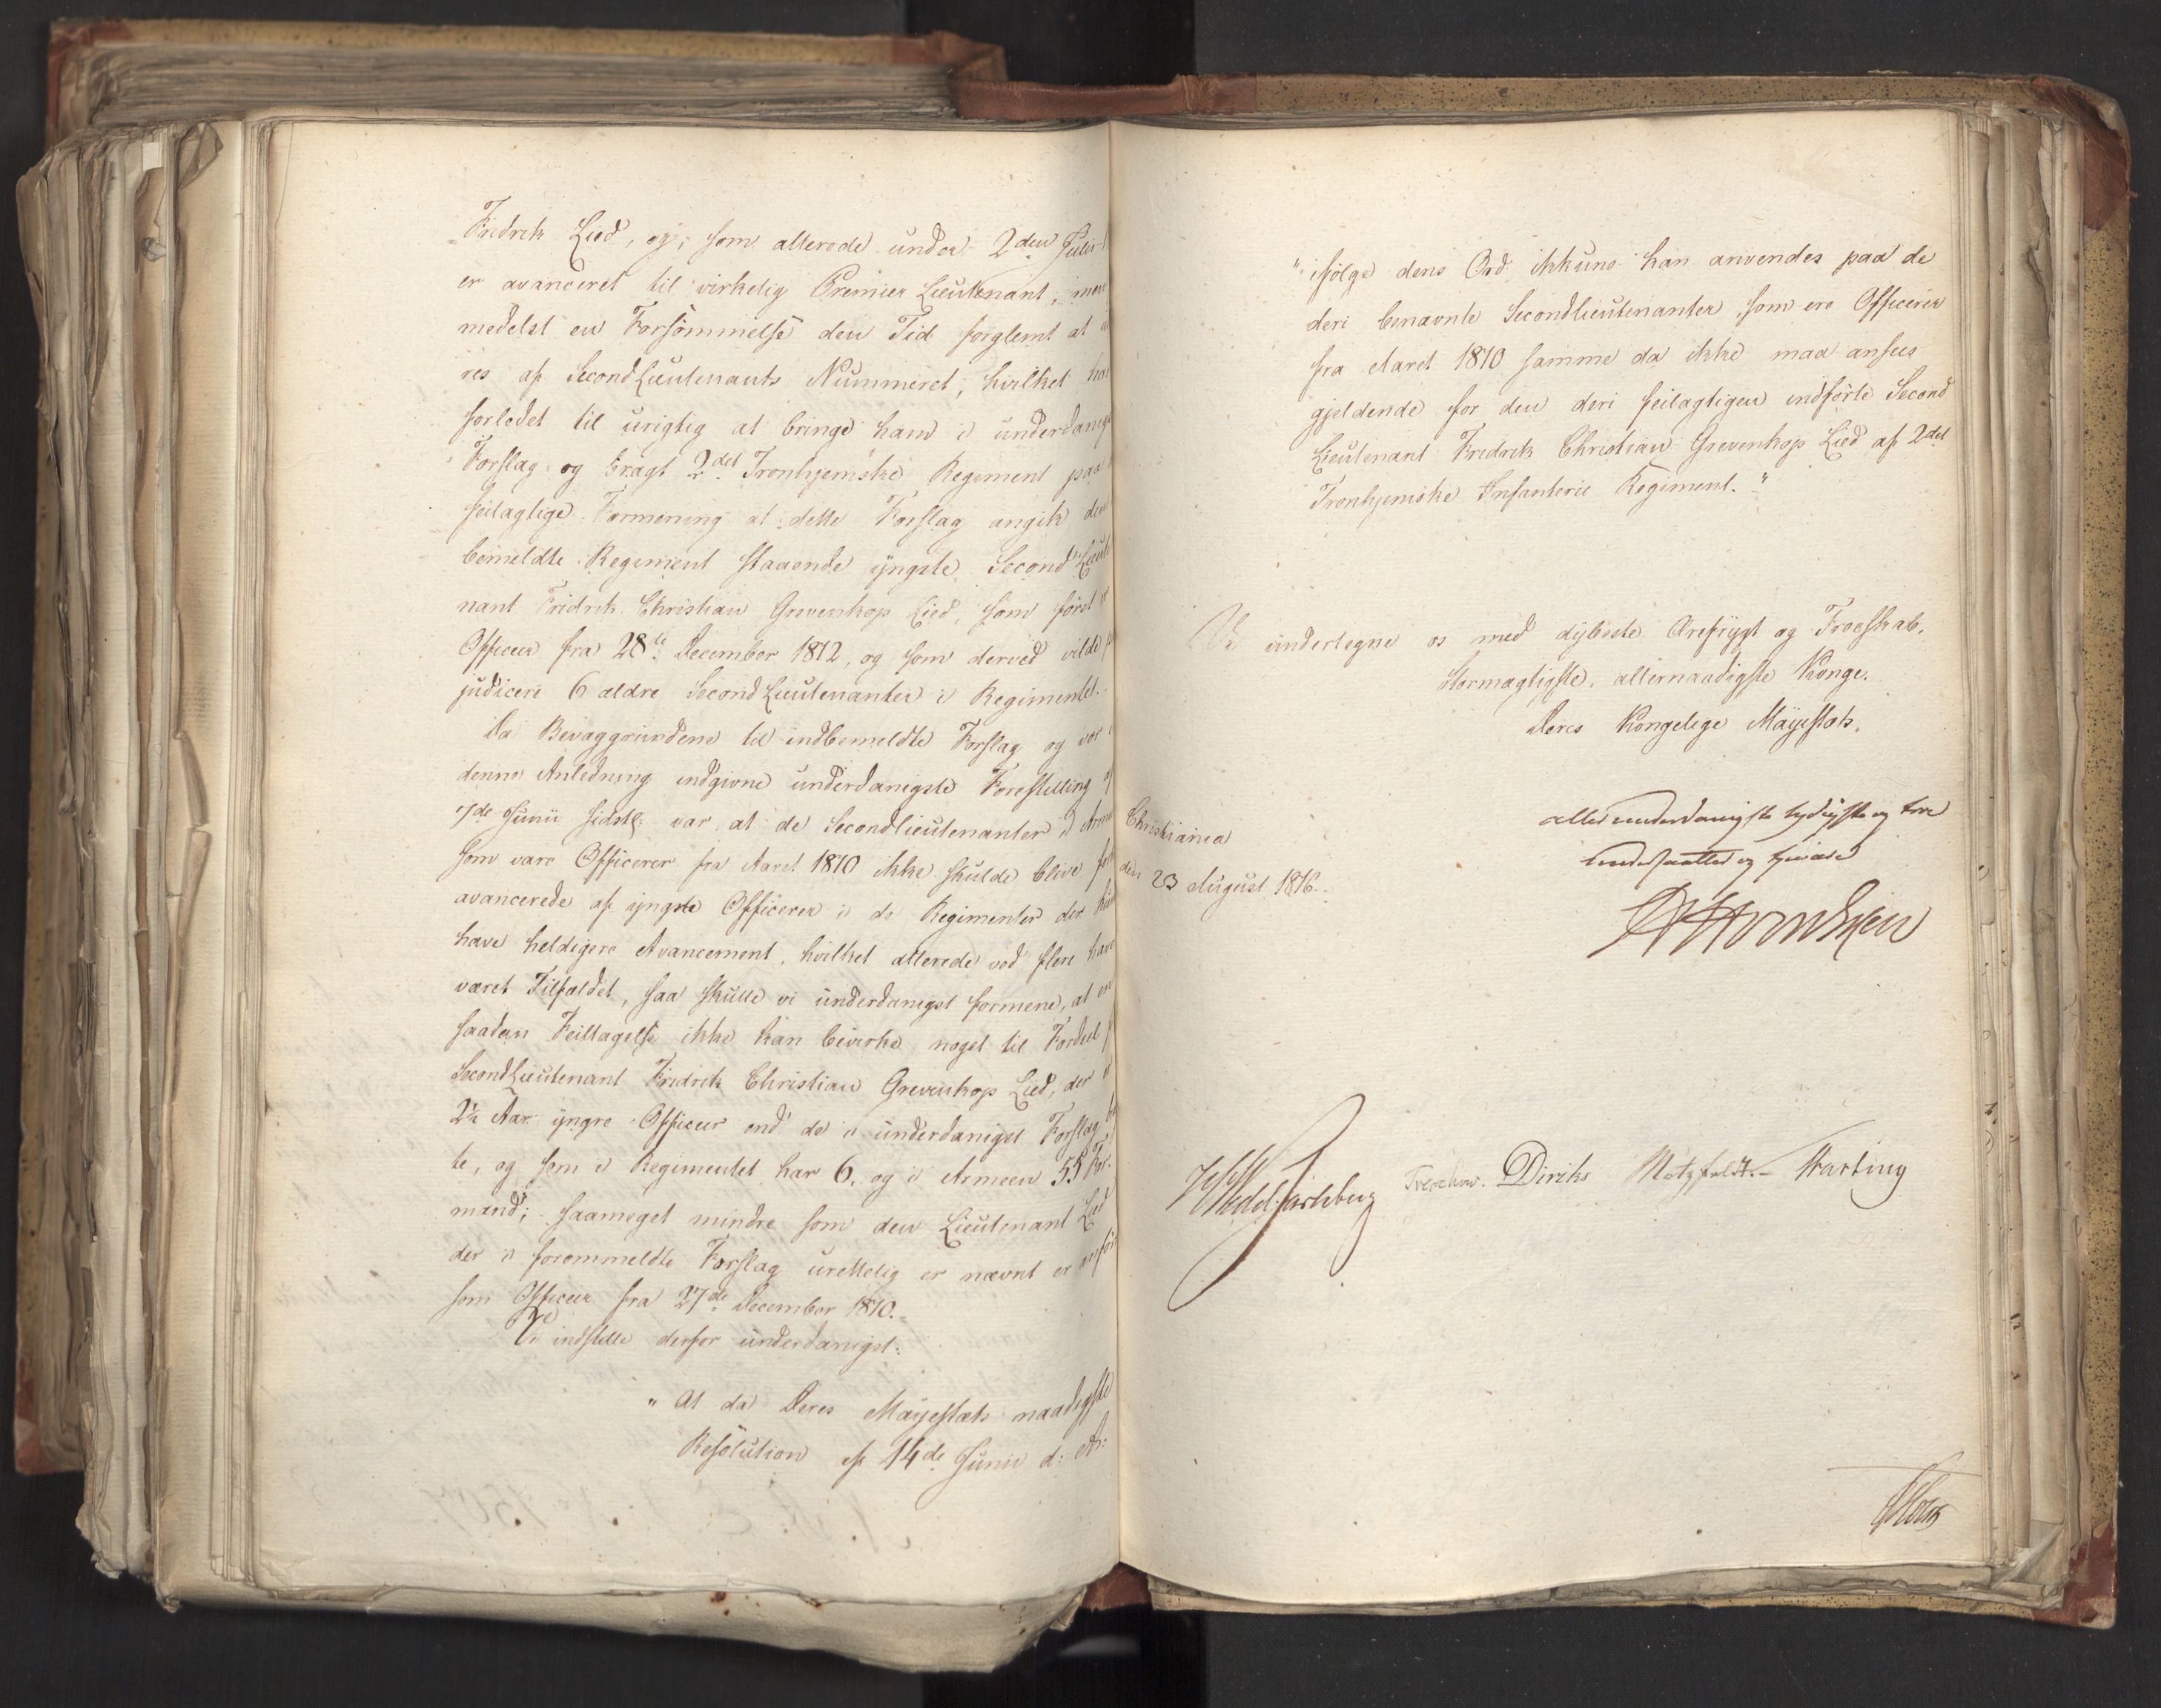 Fridrik Lied, og, som allerede under 2den Julii
er avanceret til virkelig Premier Lieutenant, men
medelst en Forsømmelse den Tid forglemt at
res af SecondLieutenants Nummeret, hvilket har
forledet til urigtig at bringe ham i underdanigst
Forslag og bragt 2det Tronhjemske Regiment paa
feilagtige Formening at dette Forslag angik den
bemeldte Regiment staaende yngste Second Lieute
nant Fridrik Christian Grevenkop Lied, som først
Officeer fra 28de December 1812, og som derved vilde
judicere 6 ældre SecondLieutenanter i Regimentet.
Da Bevæggrundene til indbemeldte Forslag og vor
denne Anledning indgivne underdanigste Forestilling af
7de Junii sidstl: var at de Secondlieutenanter i Arme
som vare Officerer fra Aaret 1810 ikke skulde blive
avancerede af yngste Officerer i de Regimenter der
have heldigere Avancement, hvilket allerede ved flere have
været Tilfældet, saa skulle vi underdanigst formene, at en
saadan Feiltagelse ikke kan bevirke noget til Fordeel
SecondLieutenant Fridrik Christian Grevenkop Lied, der
2½ Aar yngre Officeer end de i underdanigst Forslag
te, og som i Regimentet har 6, og i Armeen 55 For-
mænd; saameget mindre som den Lieutenant Lied
der i forommeldte Forslag urettelig er nævnt er anført
som Officeer fra 27de December 1810.
Vi indstille derfor underdanigst:
" At da Deres Mayestæts naadigste
Resolution af 14de Junii d: A:
" ifølge dens Ord ikkuns kan anvendes paa de
deri benævnte Secondlieutenanter som ere Officerer
fra Aaret 1810 samme da ikke maa ansees
gjeldende for den deri feilagtigen indførte Second
Lieutenant Fridrik Christian Grevenkop Lied af 2det
Tronhjemske Infanterie Regiment. "
Vi undertegne os med dybeste Ærefrygt og Troeskab,
Stormægtigste, allernaadigste Konge.
Deres Kongelige Mayestæts,
allerunderdanigste lydigste og troe
undersaatter og tjenere
Christiania
den 23 August 1816.
HWedel Jarlsberg Treschow. Diriks Motzfeldt. Harting